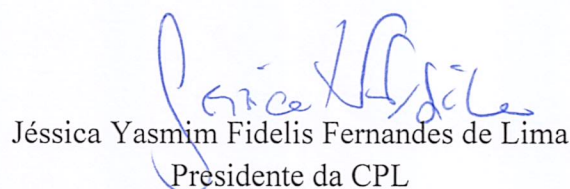 Jéssica Yasmim Fidelis Fernandes de Lima
Presidente da CPL